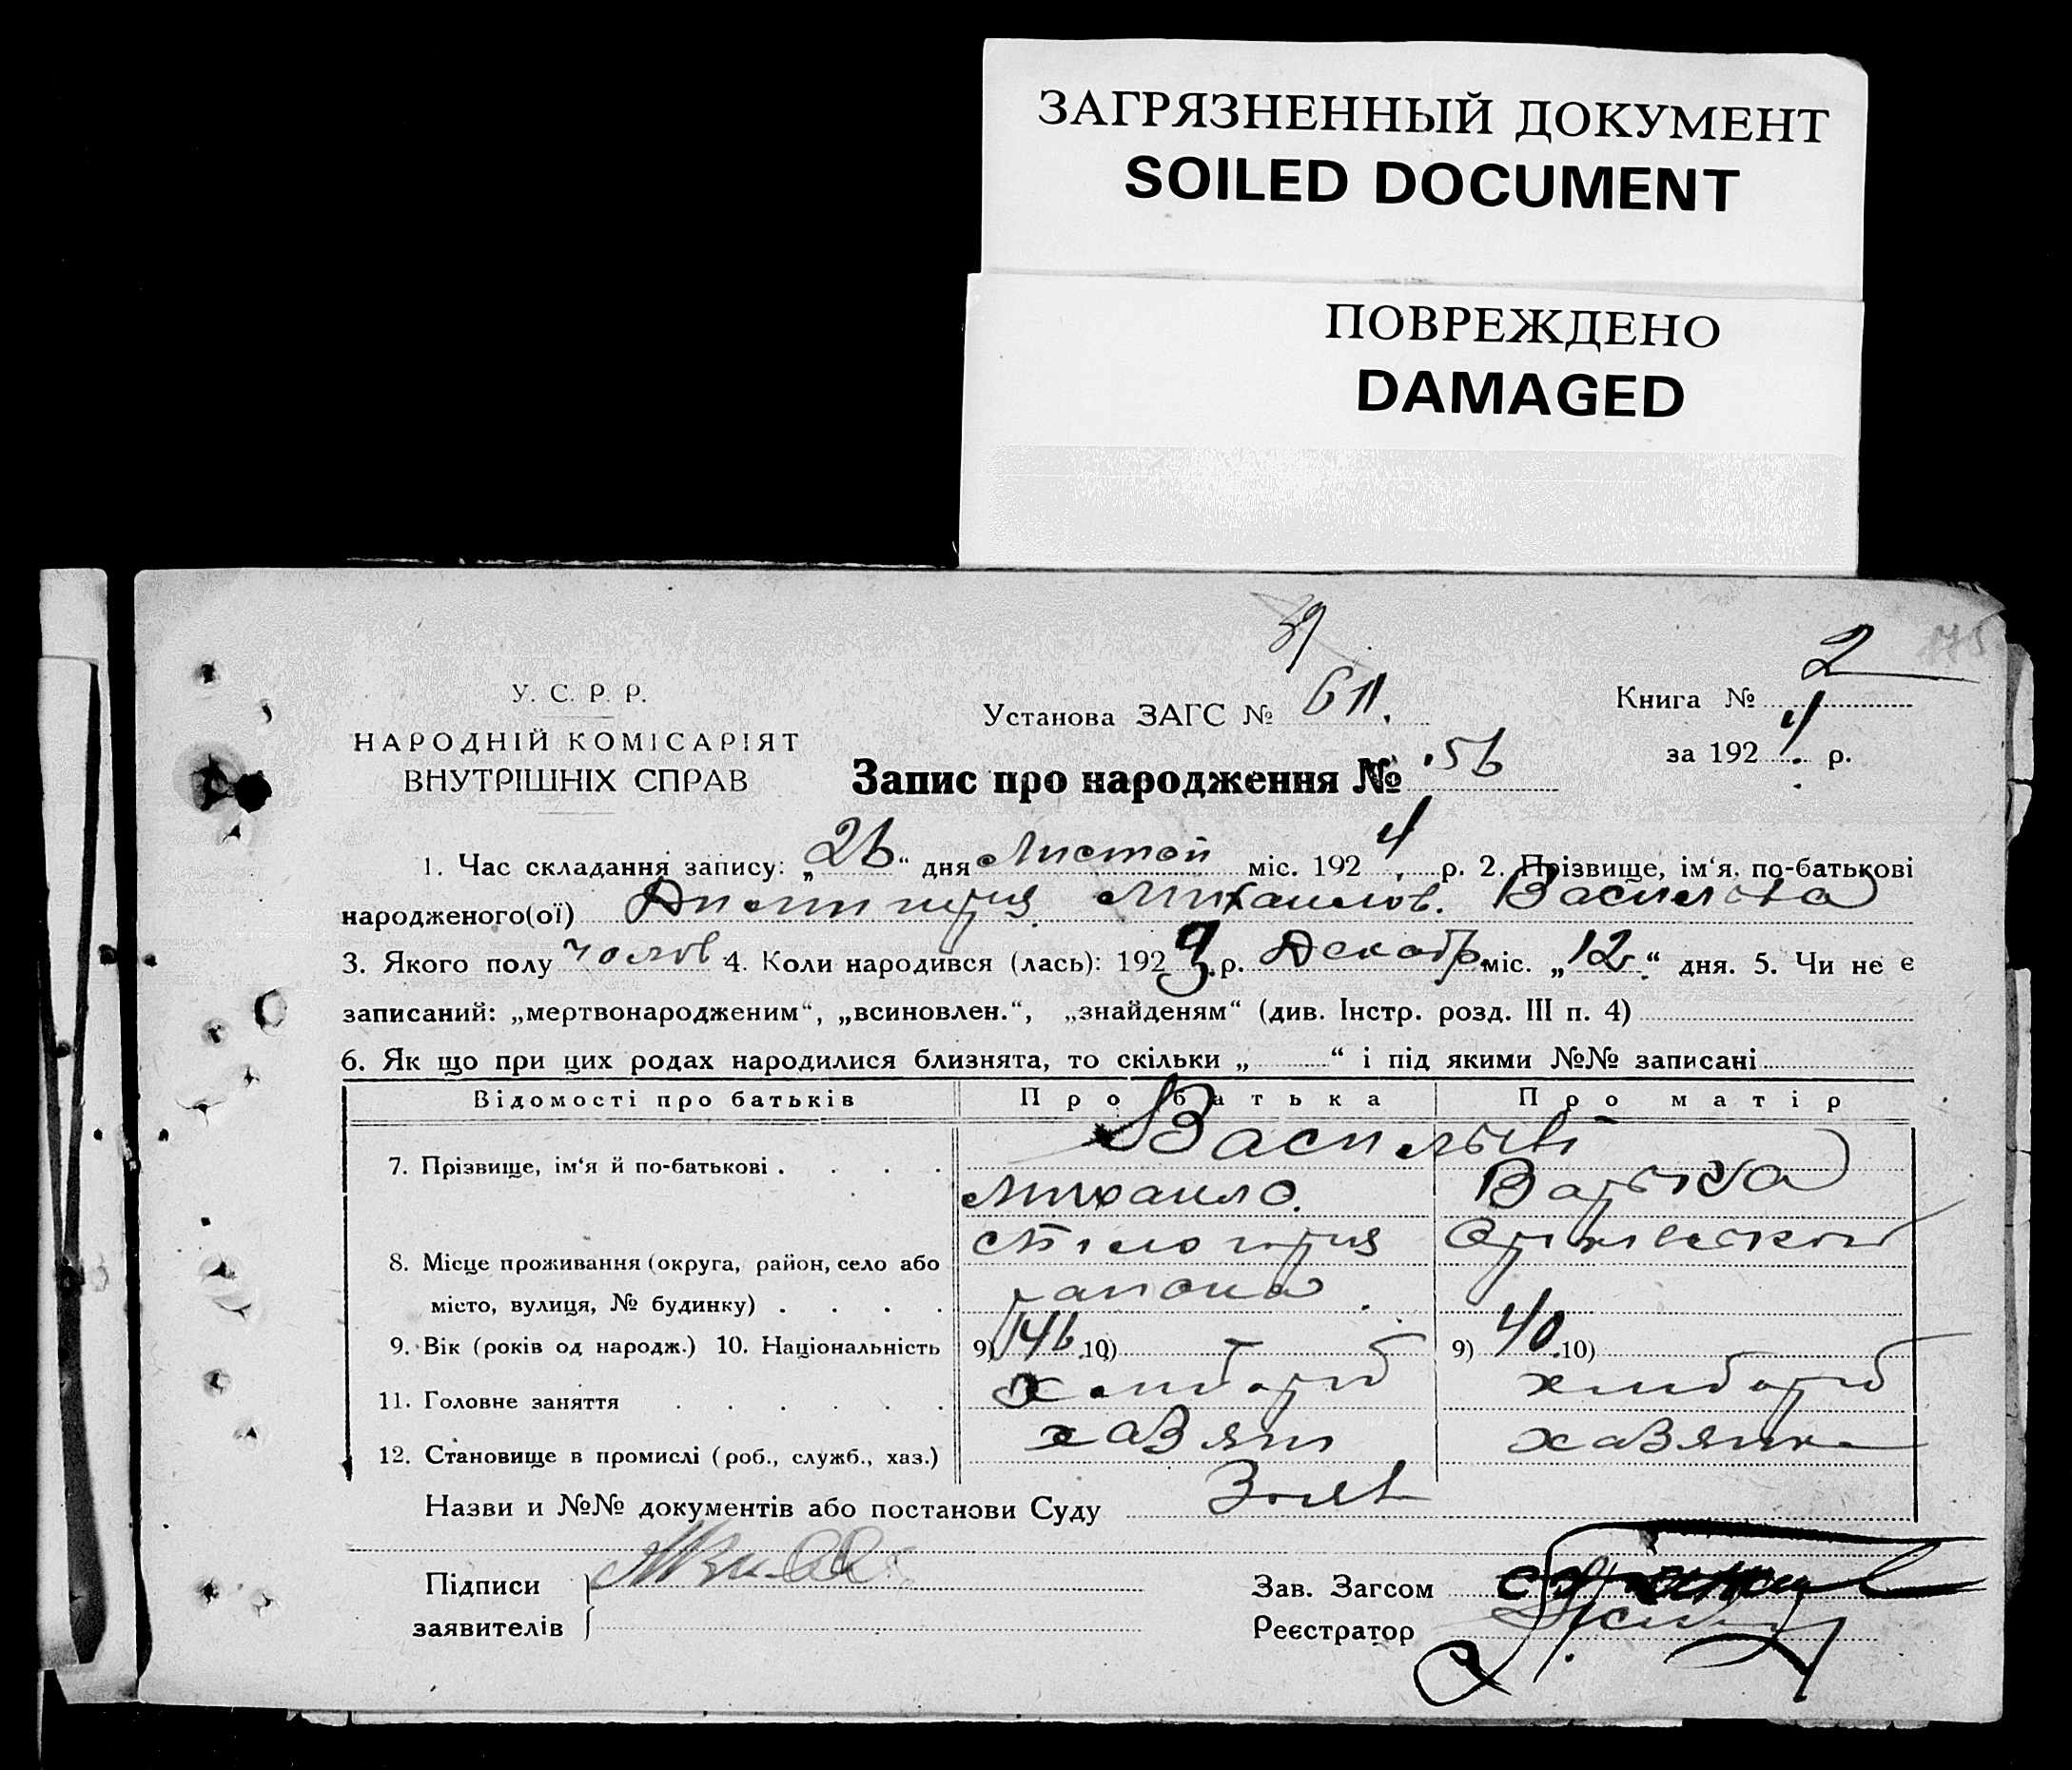 ЗАГРЯЗНЕННЫЙ ДОКУМЕНТ
SOILED DOCUMENT
ПОВРЕЖДЕНО
DAMAGED
39
2
У. С. Р. Р.
НАРОДНІЙ КОМІСАРІЯТ
ВНУТРІШНІХ СПРАВ
Установа ЗАГС № 611.
Книга №
за 192 4 р.
Запис про народження № 56
1. Час складання запису: „26“ дня Листой міс. 192 4 р. 2. Прізвище, ім‘я, по-батькові
народженого(ої) Михаилов.
3. Якого полу чолов 4. Коли народився (лась): 192 3 р. Декабр міс. „12“ дня. 5. Чи не є
записаний: „мертвонародженим“, „всиновлен.“, „знайденям“ (див. Інстр. розд. III п. 4)
6. Як що при цих родах народилися близнята, то скільки „ “ і під якими №№ записані
Відомості про батьків Про батька Про матір
Василів
7. Прізвище, ім‘я й по-батькові
Михаило.
8. Місце проживання (округа, район, село або
місто, вулиця, № будинку) района.
9. Вік (років од народж.) 10. Національність 9) 46 10) 9) 40 10)
11. Головне заняття хлибороб хлибороб
12. Становище в промислі (роб., служб., хаз.) хазяин хазяйка
Назви и №№ документів або постанови Суду
Підписи
заявителів
Зав. Загсом
Реєстратор